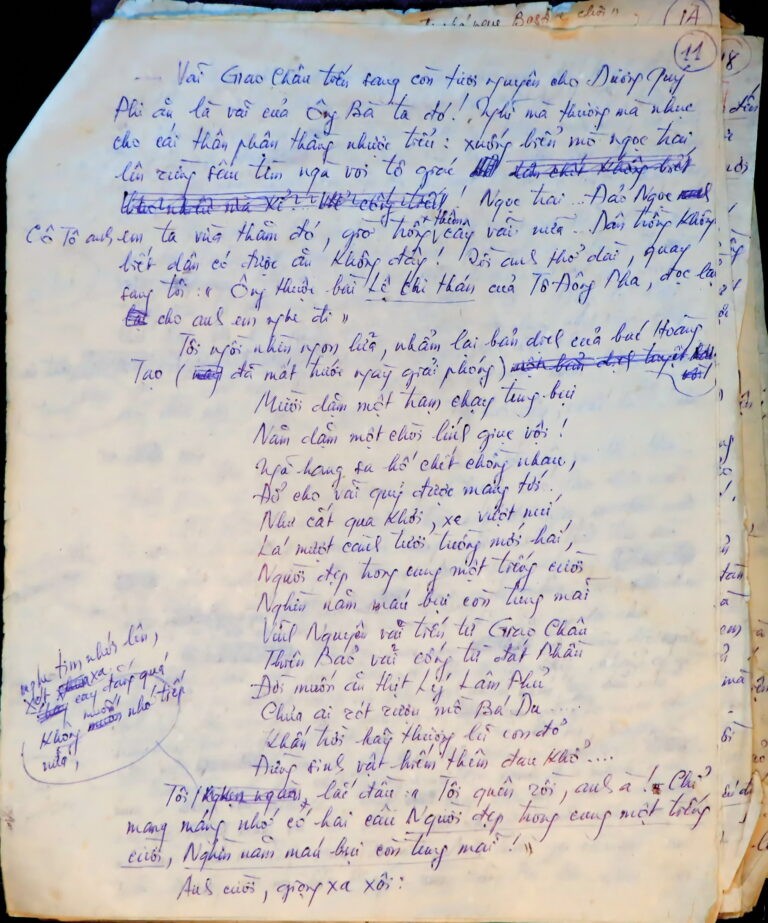 1A
11
18
— Vải Giao Châu tiến sang còn tươi nguyên cho Dương Quý
Phi ăn là vải của Ông Bà ta đó! Nghĩ mà thương mà nhục
cho cái thân phận thằng nhược tiểu: xuống biển mò ngọc trai
lên rừng săn tìm ngà voi tê giác
! Ngọc trai... Đảo Ngọc
Cô Tô anh em ta vừa thăm đó, giờ trồng thêm cây vải nữa... Dân trồng không
biết dân có được ăn không đây! Rồi anh thở dài, quay
sang tôi: "Ông thuộc bài Lệ Chi thán của Tô Đông Pha, đọc lại
cho anh em nghe đi"
Tôi ngồi nhìn ngọn lửa, nhẩm lại bản dịch của bác Hoàng
Tạo (đã mất trước ngày giải phóng)
Mười dặm một trạm chạy tung bụi
Năm dặm một chòi lính giục vội!
Ngã hang sa hố chết chồng nhau,
Để cho vải quý được mang tới.
Như cắt qua khơi, xe vượt núi
Lá mượt cành tươi tưởng mới hái,
Người đẹp trong cung một tiếng cười
Nghìn năm máu bụi còn tung mãi
Vĩnh Nguyên vải tiến từ Giao Châu
Thiên Bảo vải cống từ đất Phần
Đời muốn ăn thịt Lý Lâm Phủ
Chưa ai rót rượu mồ Bá Du....
Khấn trời hãy thương lũ con đỏ
Đừng sinh vật hiếm thêm đau khổ....
nghe tim nhói lên,
xót xa,
cay đắng quá
không muốn nhớ tiếp
nữa,
Tôi lắc đầu: "Tôi quên rồi, anh ạ! Chỉ
mang máng nhớ có hai câu Người đẹp trong cung một tiếng
cười, Nghìn năm máu bụi còn tung mãi!"
Anh cười, giọng xa xôi: